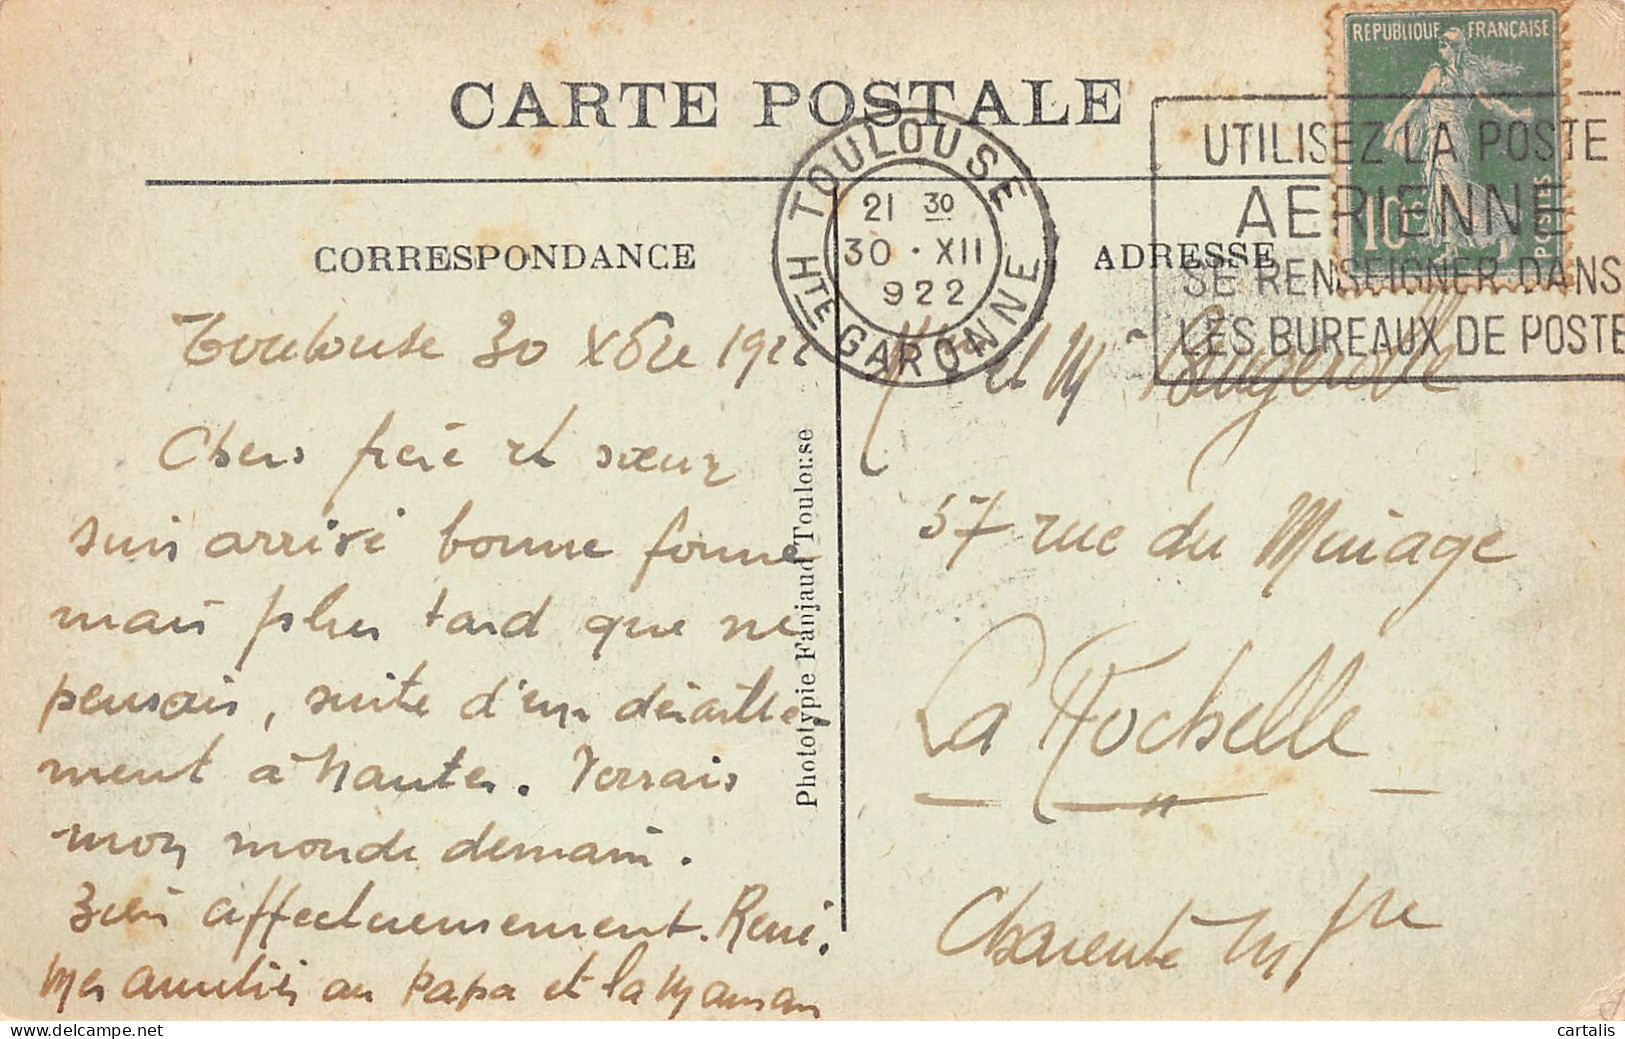 CARTE POSTALE
REPUBLIQUE FRANÇAISE
10 cs
POSTES
TOULOUSE
21 30
30 · XII
922
HTE GARONNE
UTILISEZ LA POSTE
AERIENNE
SE RENSEIGNER DANS
LES BUREAUX DE POSTE
CORRESPONDANCE
Toulouse 30 Xbre 1922
Chers frère et sœur
suis arrivé bonne forme
mais plus tard que ne
pensais, suite d'un déraille-
ment à Nantes. Verrais
mon monde demain.
Bien affectueusement. René.
Mes amitiés au Papa et la Maman
Phototypie Fanjaud Toulouse
ADRESSE
et M
57 rue du Minage
La Rochelle
Charente Infre
cartalis